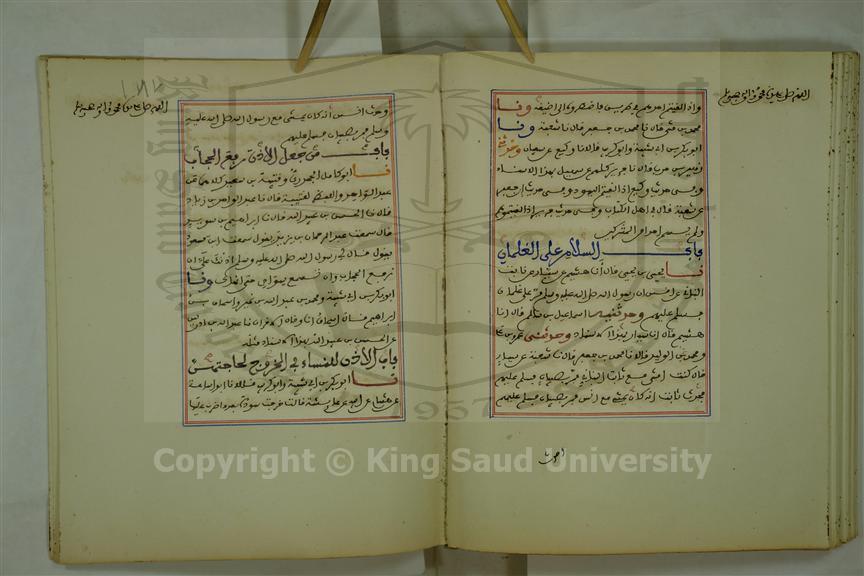 واذا لقيتم احدهم في طريق فاضطروه الى اضيقه ونا
محمد بن مثنى قال نا محمد بن جعفر قال نا شعبة ونا
ابو بكر بن ابي شيبة وابو كريب قالا نا وكيع عن سفيان وحدثني
زهير بن حرب قال نا جرير كلهم عن سهيل بهذا الاسناد
وفي حديث وكيع اذا لقيتم اليهود وفي حديث ابن جعفر
عن شعبة قال في اهل الكتاب وفي حديث جرير اذا لقيتموهم
ولم يسم احدا من المشركين
باب السلام على الغلمان
نا يحيى بن يحيى قال انا هشيم عن سيار عن ثابت
البناني عن انس ان رسول الله صلى الله عليه وسلم مر على غلمان
فسلم عليهم وحدثنيه اسماعيل بن سالم قال انا
هشيم قال انا سيار بهذا الاسناد وحدثني عمرو بن علي
ومحمد بن الوليد قالا نا محمد بن جعفر قال نا شعبة عن سيار
قال كنت امشي مع ثابت البناني فمر بصبيان فسلم عليهم
فحدث ثابت انه كان يمشي مع انس فمر بصبيان فسلم عليهم
وحدث انس انه كان يمشي مع رسول الله صلى الله عليه
وسلم فمر بصبيان فسلم عليهم
باب من جعل الاذن رفع الحجاب
نا ابو كامل الجحدري وقتيبة بن سعيد كلاهما عن
عبد الواحد واللفظ لقتيبة قال نا عبد الواحد بن زياد
قال نا الحسن بن عبيد الله قال نا ابراهيم بن سويد
قال سمعت عبد الرحمان بن يزيد يقول سمعت ابن مسعود
يقول قال لي رسول الله صلى الله عليه وسلم اذنك علي ان
ترفع الحجاب وان تسمع سوادي حتى انهاك ونا
ابو بكر بن ابي شيبة ومحمد بن عبد الله بن نمير واسحاق بن
ابراهيم قال اسحاق انا وقال الاخران نا عبد الله بن ادريس
عن الحسن بن عبيد الله بهذا الاسناد مثله
باب الاذن للنساء في الخروج لحاجتهن
نا ابو بكر بن ابي شيبة وابو كريب قالا نا ابو اسامة
عن هشام عن ابيه عن عايشة قالت خرجت سودة بعد ما ضرب عليها
Copyright © King Saud University
1957